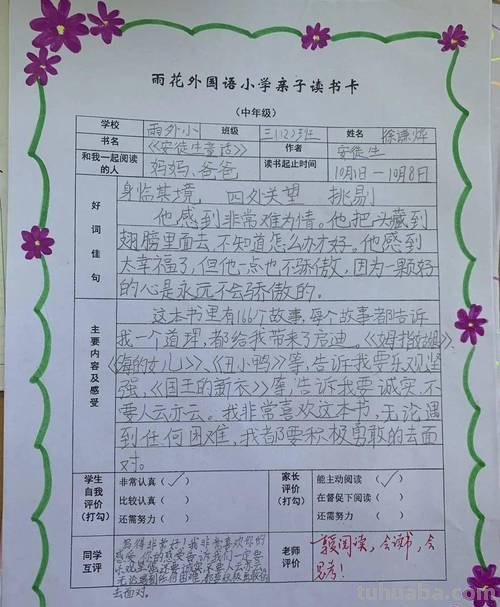 雨花外国语小学亲子读书卡
(中年级)
学校 雨外小 班级 三(12)班 姓名 徐谦烨
书名 《安徒生童话》 作者 安徒生
和我一起阅读的人 妈妈、爸爸 读书起止时间 10月1日—10月8日
好词佳句
身临其境, 四处关望 挑剔
他感到非常难为情。他把头藏到
翅膀里面去,不知道怎么办才好。他感到
太幸福了,但他一点也不骄傲,因为一颗好
的心是永远不会骄傲的。
主要内容及感受
这本书里有166个故事,每个故事都告诉
我一个道理,都给我带来了启迪。《姆指姑娘》
《海的女儿》、《丑小鸭》等,告诉我要乐观坚
强,《国王的新衣》等,告诉我要诚实,不
要人云亦云。我非常喜欢这本书,无论遇
到任何困难,我都要积极勇敢的去面
对。
学生自我评价(打勾)
非常认真(✓)
比较认真( )
还需努力( )
家长评价(打勾)
能主动阅读(✓)
在督促下阅读( )
还需努力( )
同学互评
写得非常好!我非常喜欢你的
去面对。
老师评价
阅读,会读书,会
思考!
tuhuaba.com